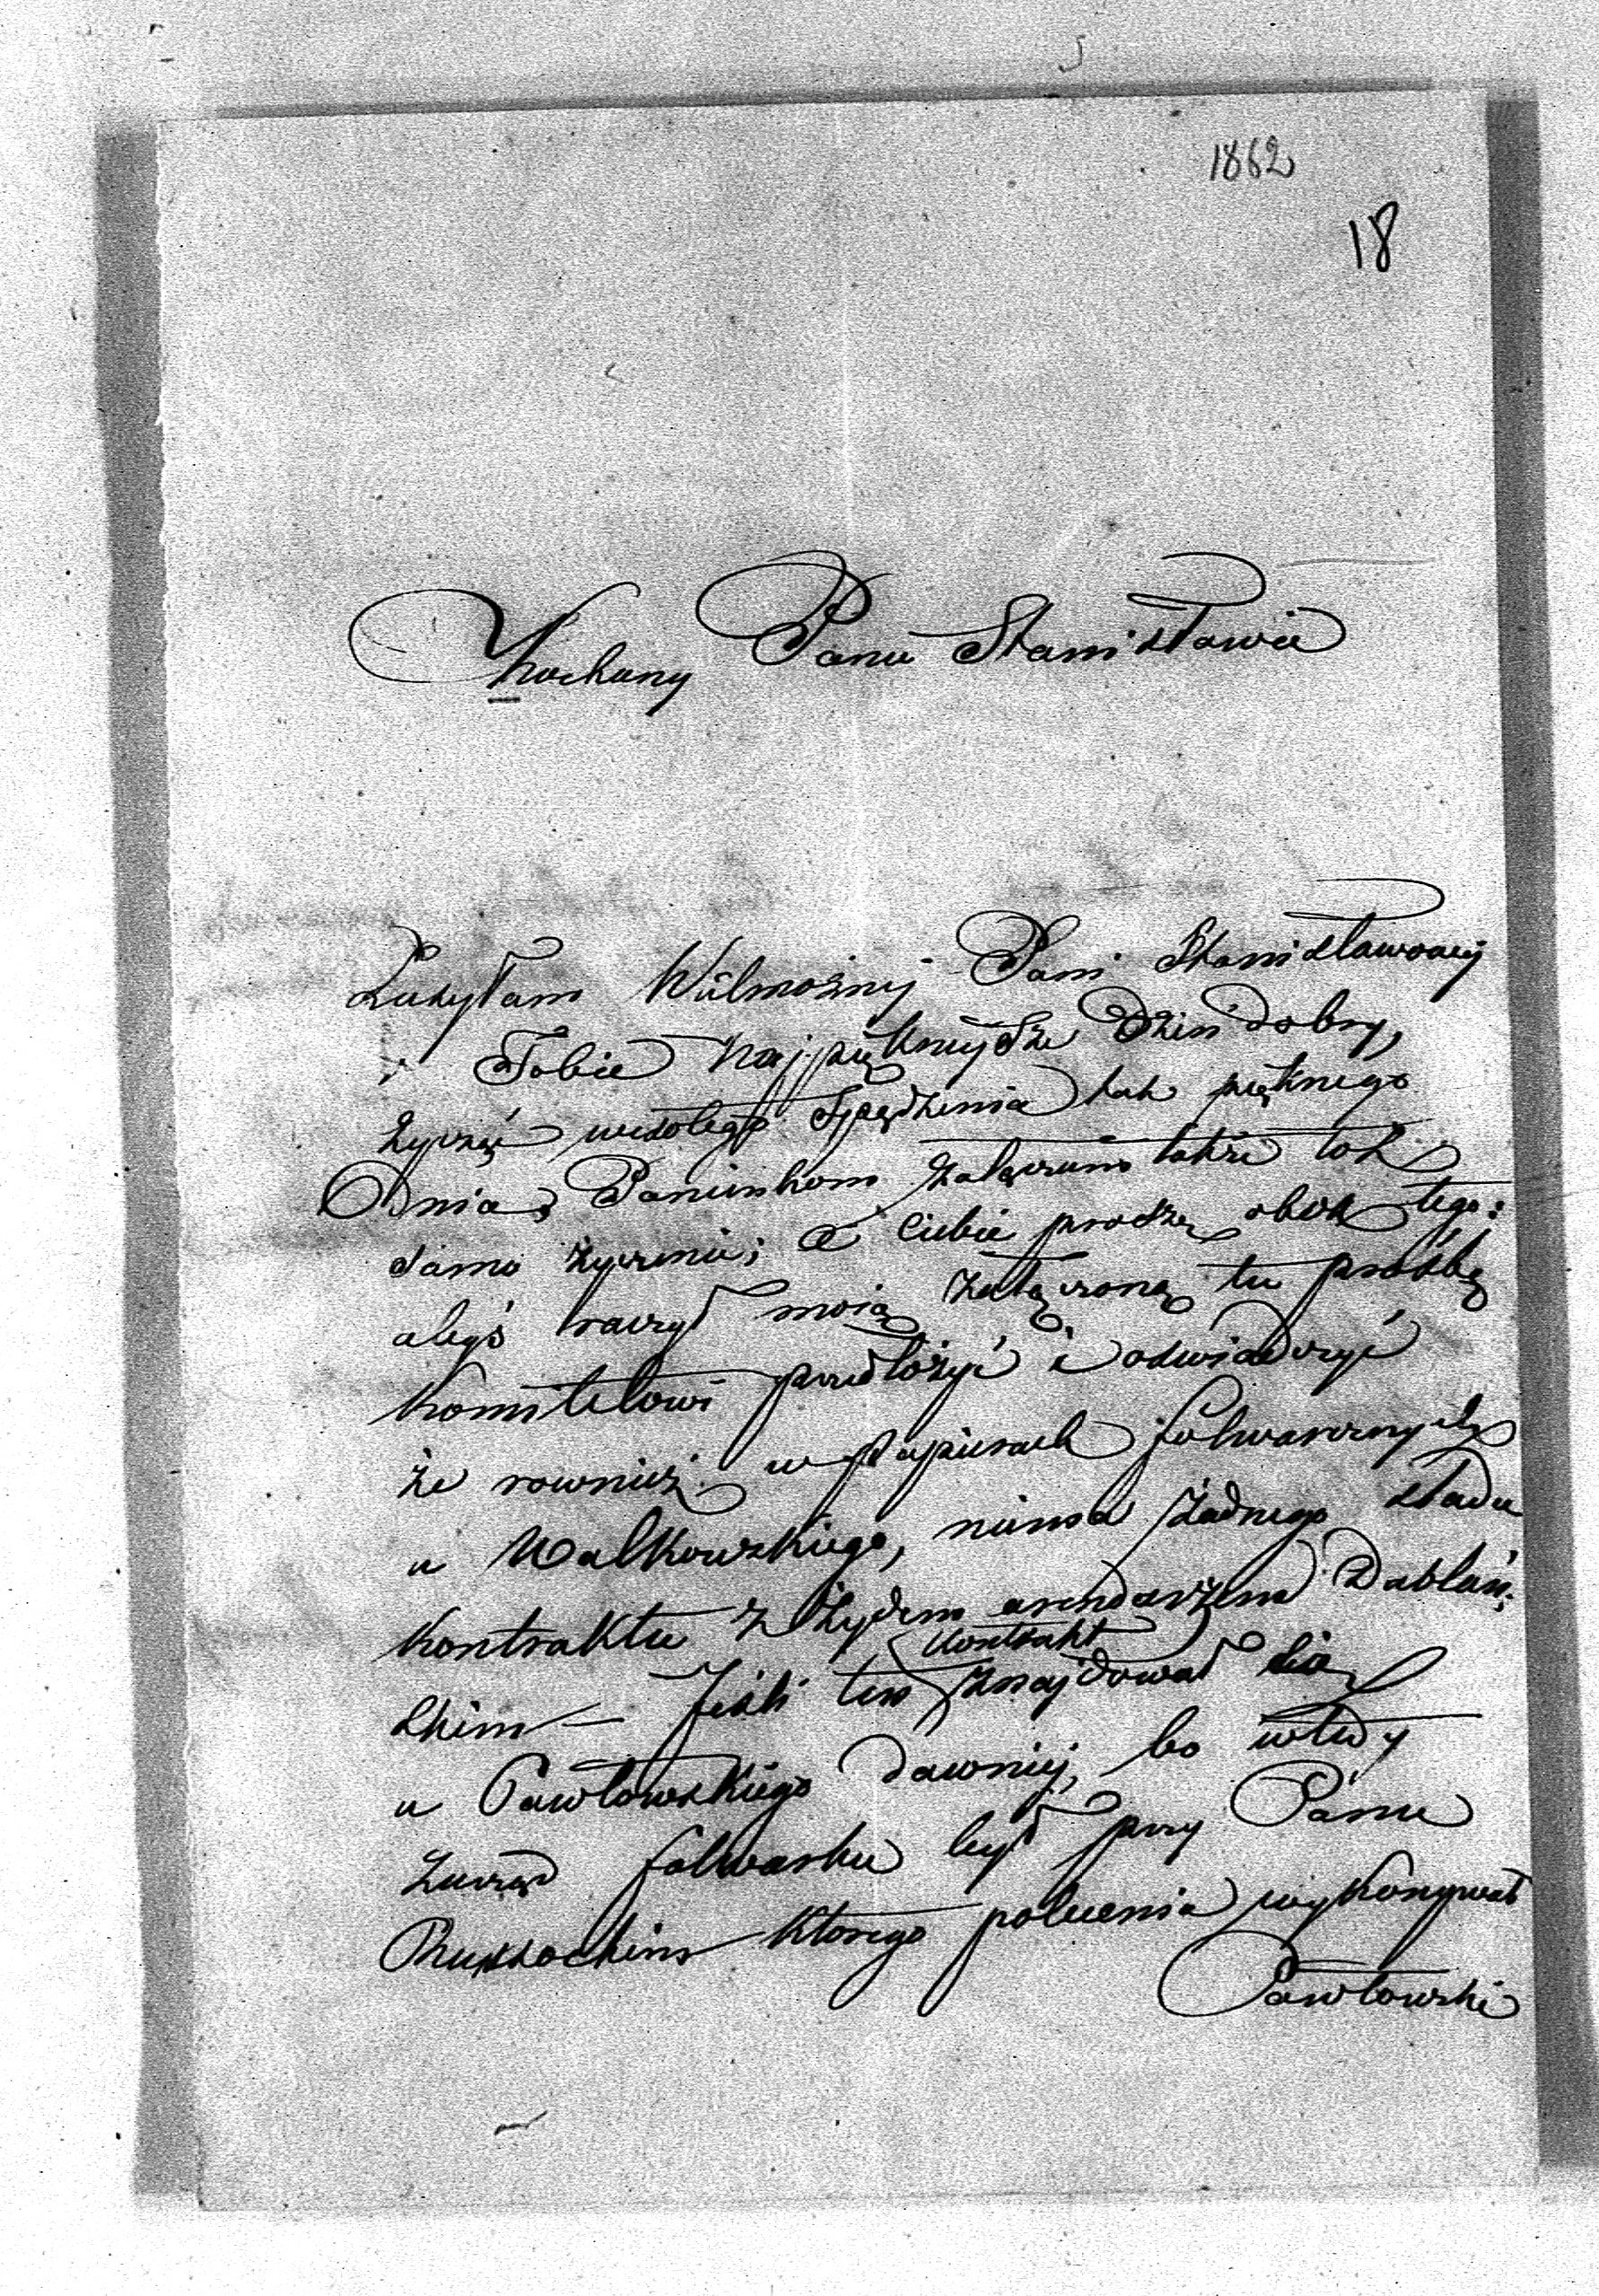 1862
18
Kochany Panie Stanisławie
Zasyłam Wielmożnej Pani Stanisławowej
i Tobie najpiękniejsze Dzień dobry,
życzę wesołego spędzenia tak pięknego
Dnia, Panienkom załączam także toż
samo życzenie; a Ciebie proszę obok tego:
abyś raczył moią załączoną tu prośbę
Komitetowi przedłożyć i odwiadczyć
że rownież w papierach folwarcznych
u Walkowskiego, niema żadnego śladu
Kontraktu z Żydem arendarzem Dublań:
skim — Jeśli ten Kontrakt znajdował się
u Pawłowskiego dawniej, bo wtedy
zarząd folwarku był przy Panu
Russockim którego polecenia wykonywał
Pawłowski